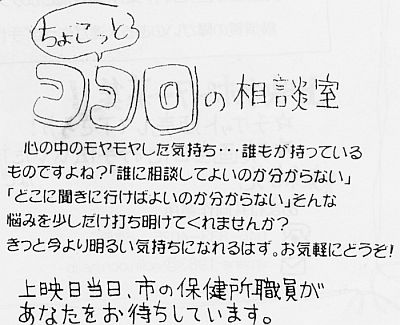 ちょこっとう
ココロの相談室
心の中のモヤモヤした気持ち･･･誰もが持っている
ものですよね?「誰に相談してよいのか分からない」
「どこに聞きに行けばよいのか分からない」そんな
悩みを少しだけ打ち明けてくれませんか?
きっと今より明るい気持ちになれるはず。お気軽にどうぞ!
上映日当日、市の保健所職員が
あなたをお待ちしています。